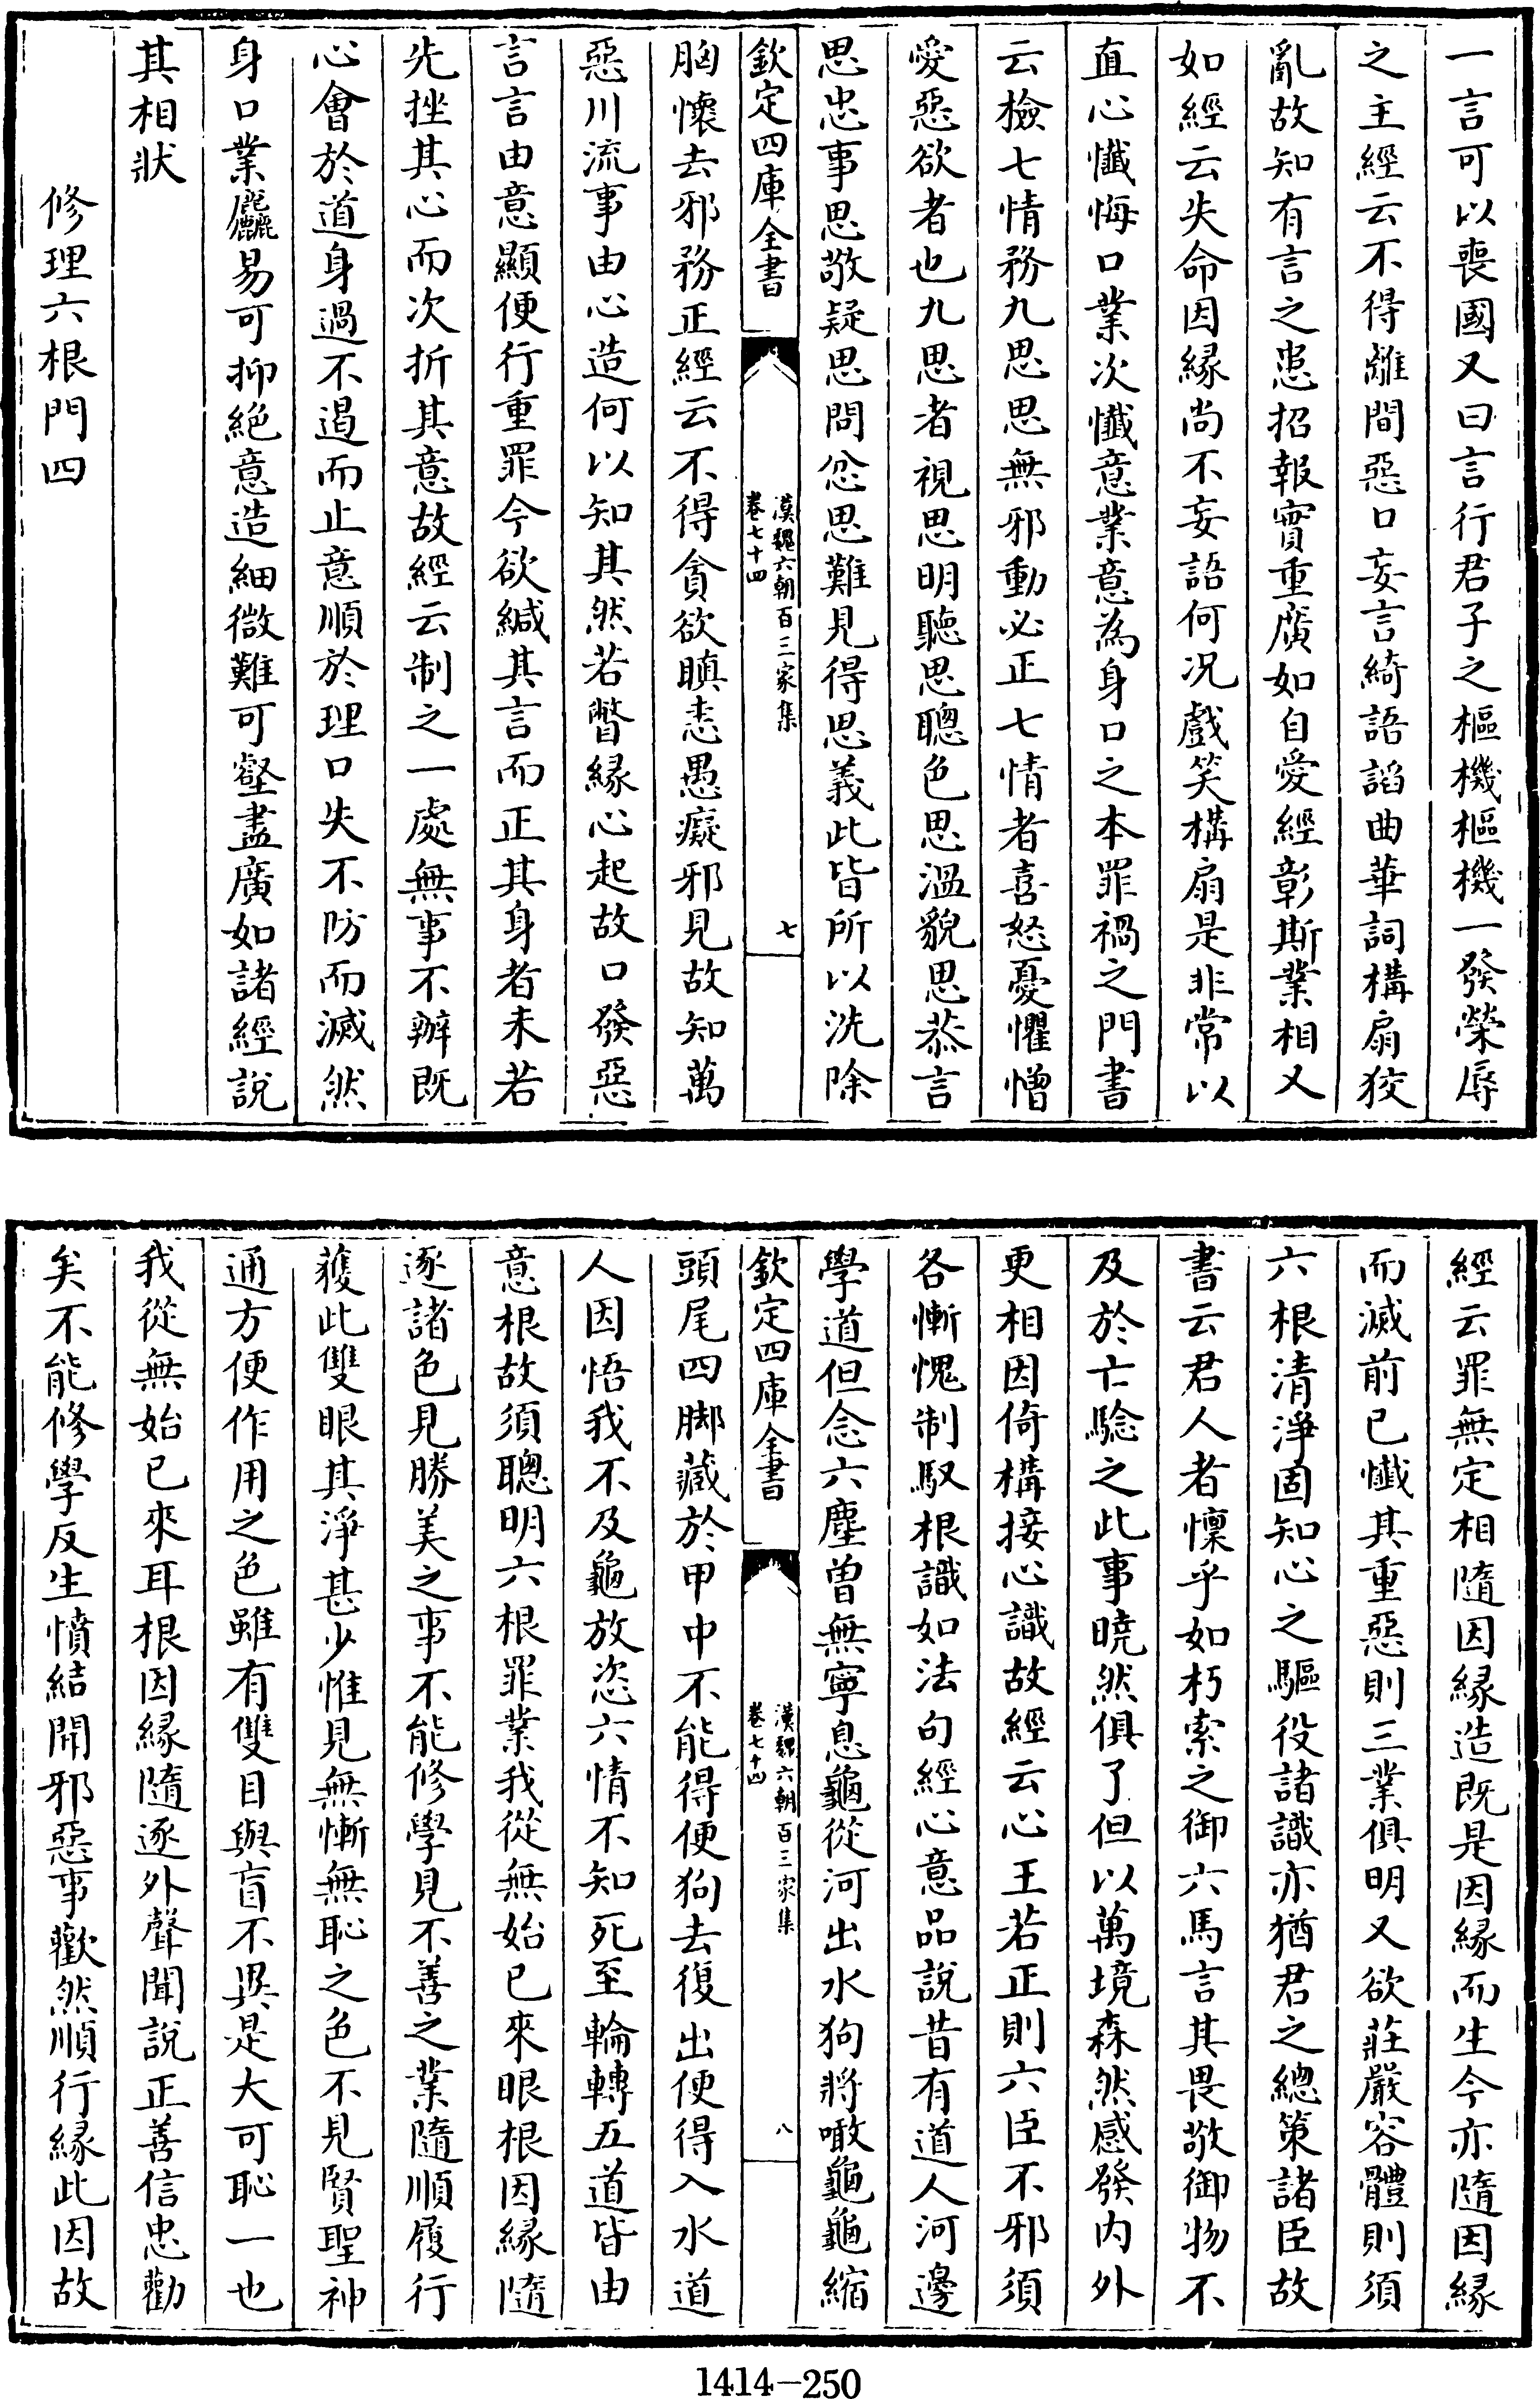 一言可以喪國又曰言行君子之樞機樞機一發榮辱
之主經云不得離間惡口妄言綺語諂曲華詞構扇狡
亂故知有言之患招報實重廣如自愛經彰斯業相又
如經云失命因緣尚不妄語何况戲笑構扇是非常以
直心懺悔口業次懺意業意為身口之本罪禍之門書
云檢七情務九思思無邪動必正七情者喜怒憂懼憎
愛惡欲者也九思者視思明聽思聰色思溫貌思恭言
思忠事思敬疑思問忿思難見得思義此皆所以洗除
欽定四庫全書
漢魏六朝百三家集
卷七十四
七
胸懷去邪務正經云不得貪欲瞋恚愚癡邪見故知萬
惡川流事由心造何以知其然若瞥緣心起故口發惡
言言由意顯便行重罪今欲緘其言而正其身者未若
先挫其心而次折其意故經云制之一處無事不辦既
心會於道身過不遏而止意順於理口失不防而滅然
身口業麤易可抑絕意造細微難可壑盡廣如諸經說
其相狀
修理六根門四
經云罪無定相隨因緣造既是因緣而生今亦隨因緣
而滅前已懺其重惡則三業俱明又欲莊嚴容體則須
六根清淨固知心之驅役諸識亦猶君之總策諸臣故
書云君人者懍乎如朽索之御六馬言其畏敬御物不
及於亡驗之此事曉然俱了但以萬境森然感發內外
更相因倚構接心識故經云心王若正則六臣不邪須
各慚愧制馭根識如法句經心意品說昔有道人河邊
學道但念六塵曾無寧息龜從河出水狗將噉龜龜縮
欽定四庫全書
漢魏六朝百三家集
卷七十四
八
頭尾四脚藏於甲中不能得便狗去復出便得入水道
人因悟我不及龜放恣六情不知死至輪轉五道皆由
意根故須聰明六根罪業我從無始已來眼根因緣隨
逐諸色見勝美之事不能修學見不善之業隨順履行
獲此雙眼其淨甚少惟見無慚無恥之色不見賢聖神
通方便作用之色雖有雙目與盲不異是大可恥一也
我從無始已來耳根因緣隨逐外聲聞說正善信忠勸
矣不能修學反生憤結聞邪惡事歡然順行緣此因故
1414-250